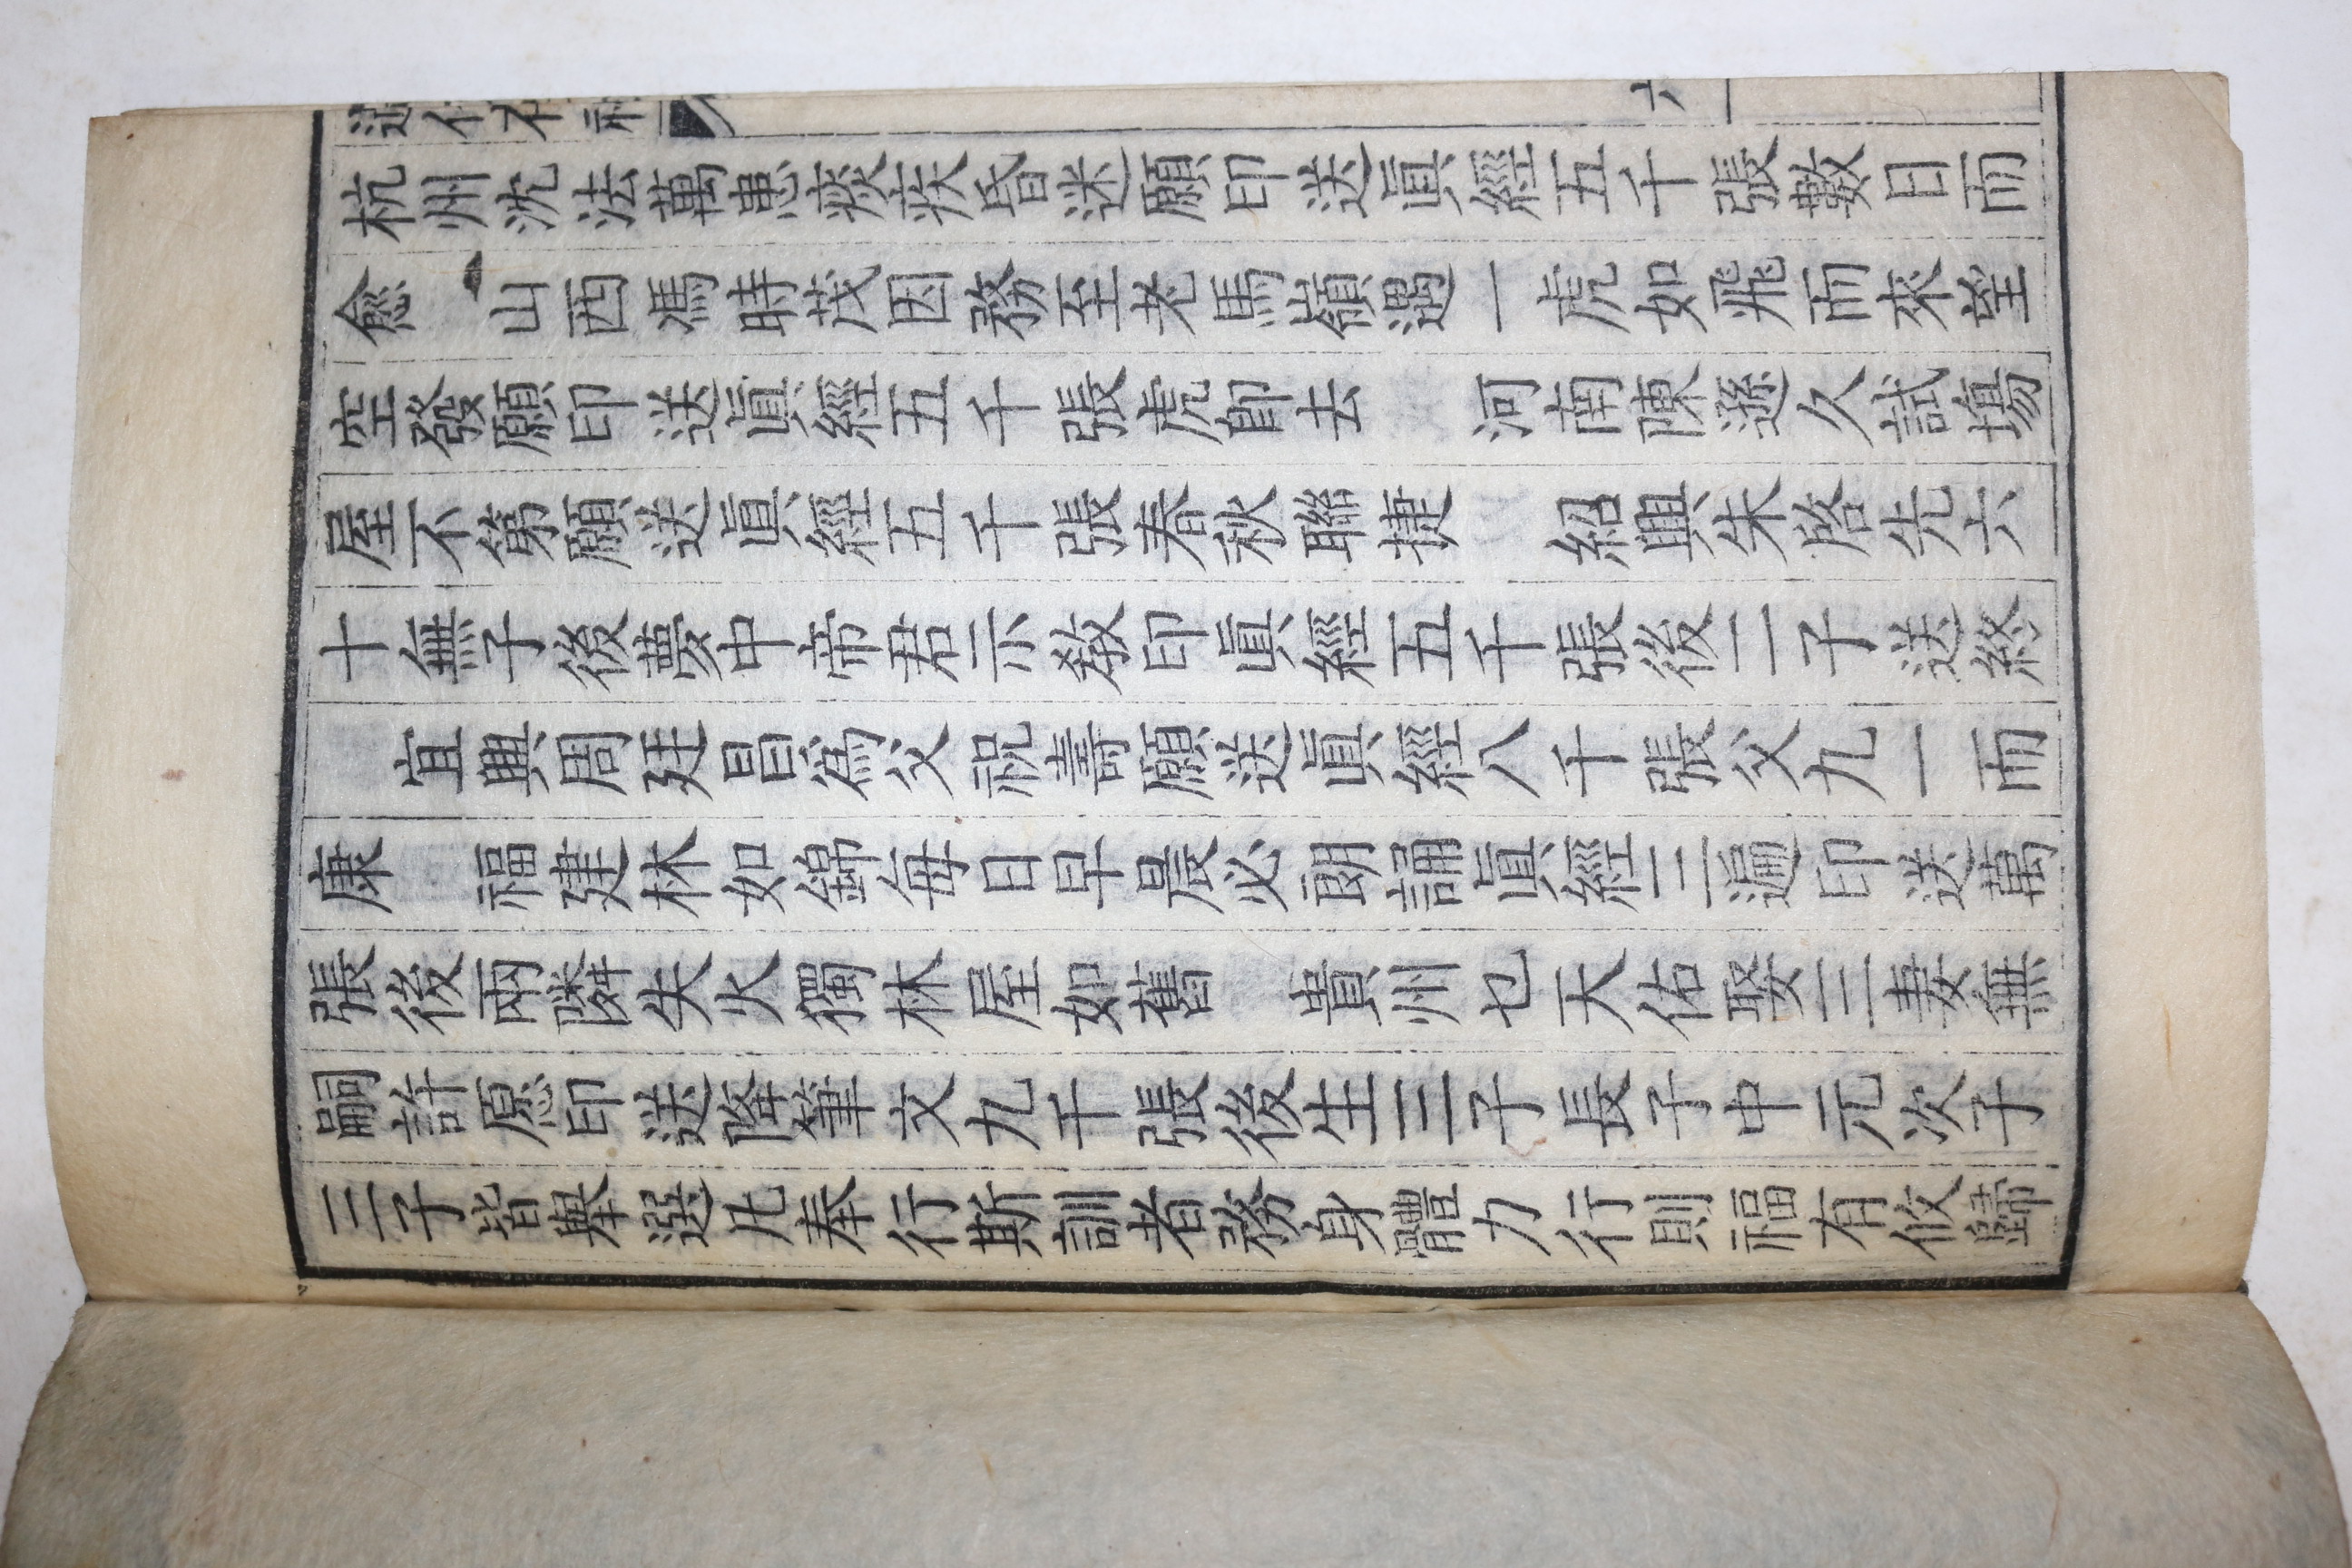 六
杭州沈法萬患痰疾昏迷願印送眞經五千張數日而
愈　山西馮時茂因務至老馬嶺遇一虎如飛而來望
空發願印送眞經五千張虎卽去　河南陳遜久試塲
屋不第願送眞經五千張春秋聯捷　紹興朱啓先六
十無子後夢中帝君示敎印眞經五千張後二子送終
宜興周廷昌爲父祝壽願送眞經八千張父九一而
康　福建林如錦每日早晨必朗誦眞經三遍印送萬
張後兩隣失火獨林屋如舊　貴州乜天佑娶三妻無
嗣許愿印送降筆文九千張後生三子長子中元次子
三子皆舉選凡奉行斯訓者務身體力行則福有攸歸